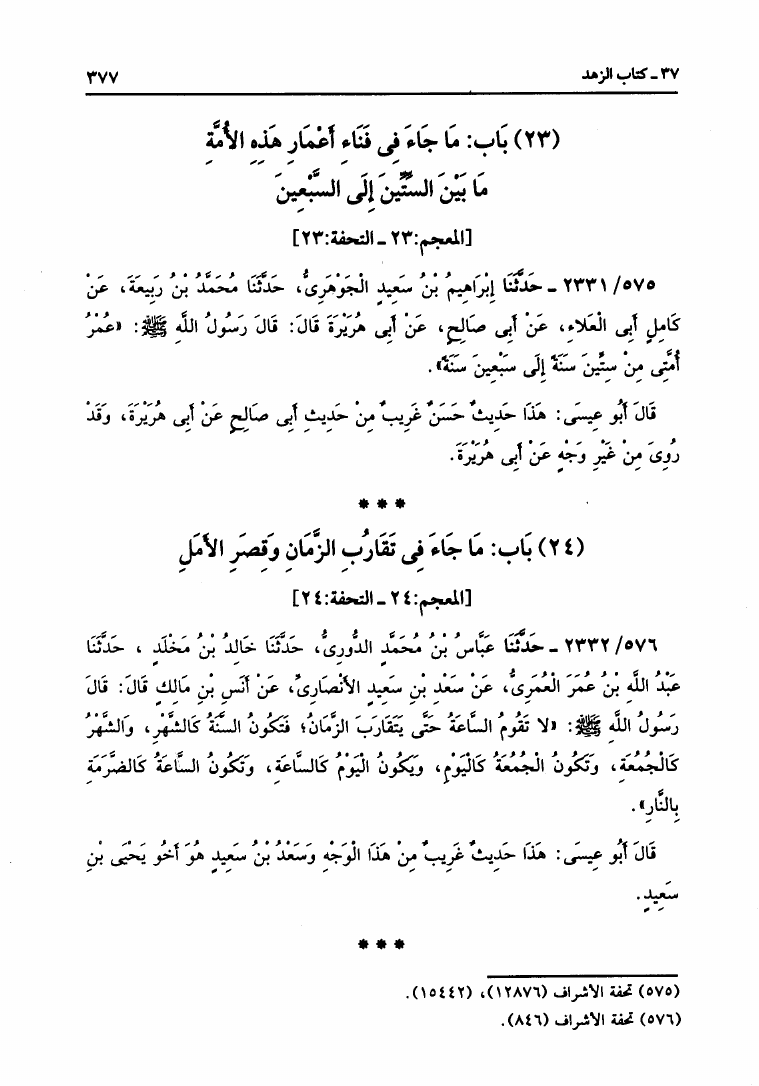 ٣٧ ـ كتاب الزهد
٣٧٧
(٢٣) بَاب: مَا جَاءَ فِى فَنَاءِ أَعْمَارِ هَذِهِ الأُمَّةِ
مَا بَيْنَ السِّتِّينَ إِلَى السَّبْعِينَ
[المعجم:٢٣ ـ التحفة:٢٣]
٢٣٣١/٥٧٥ ـ حَدَّثَنَا إِبْرَاهِيمُ بْنُ سَعِيدٍ الْجَوْهَرِىُّ، حَدَّثَنَا مُحَمَّدُ بْنُ رَبِيعَةَ، عَنْ
كَامِلٍ أَبِى الْعَلاءِ، عَنْ أَبِى صَالِحٍ، عَنْ أَبِى هُرَيْرَةَ قَالَ: قَالَ رَسُولُ اللَّهِ ﷺ: «عُمْرُ
أُمَّتِى مِنْ سِتِّينَ سَنَةً إِلَى سَبْعِينَ سَنَةً».
قَالَ أَبُو عِيسَى: هَذَا حَدِيثٌ حَسَنٌ غَرِيبٌ مِنْ حَدِيثِ أَبِى صَالِحٍ عَنْ أَبِى هُرَيْرَةَ، وَقَدْ
رُوِىَ مِنْ غَيْرِ وَجْهٍ عَنْ أَبِى هُرَيْرَةَ.
* * *
(٢٤) بَاب: مَا جَاءَ فِى تَقَارُبِ الزَّمَانِ وَقِصَرِ الأَمَلِ
[المعجم:٢٤ ـ التحفة:٢٤]
٢٣٣٢/٥٧٦ ـ حَدَّثَنَا عَبَّاسُ بْنُ مُحَمَّدٍ الدُّورِىُّ، حَدَّثَنَا خَالِدُ بْنُ مَخْلَدٍ ، حَدَّثَنَا
عَبْدُ اللَّهِ بْنُ عُمَرَ الْعُمَرِىُّ، عَنْ سَعْدِ بْنِ سَعِيدٍ الأَنْصَارِىِّ، عَنْ أَنَسِ بْنِ مَالِكٍ قَالَ: قَالَ
رَسُولُ اللَّهِ ﷺ: «لا تَقُومُ السَّاعَةُ حَتَّى يَتَقَارَبَ الزَّمَانُ؛ فَتَكُونُ السَّنَةُ كَالشَّهْرِ، وَالشَّهْرُ
كَالْجُمُعَةِ، وَتَكُونُ الْجُمُعَةُ كَالْيَوْمِ، وَيَكُونُ الْيَوْمُ كَالسَّاعَةِ، وَتَكُونُ السَّاعَةُ كَالضَّرَمَةِ
بِالنَّارِ».
قَالَ أَبُو عِيسَى: هَذَا حَدِيثٌ غَرِيبٌ مِنْ هَذَا الْوَجْهِ وَسَعْدُ بْنُ سَعِيدٍ هُوَ أَخُو يَحْيَى بْنِ
سَعِيدٍ.
* * *
(٥٧٥) تحفة الأشراف (١٢٨٧٦)، (١٥٤٤٢).
(٥٧٦) تحفة الأشراف (٨٤٦).